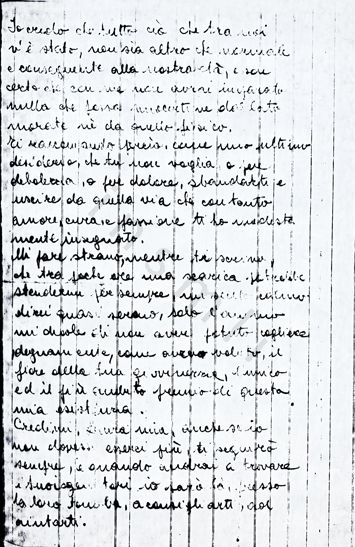 Io credo che tutto ciò che tra noi
v'è stato, non sia altro che normale
e conseguente alla nostra età, e son
certo che con me non avrai imparato
nulla che possa nuocerti né dal lato
morale né da quello fisico.
Ti raccomando, come mio ultimo
desiderio, che tu non voglia o per
debolezza, o per dolore, sbandarti e
uscire da quella via che con tanto
amore, cura e passione ti ho modesta
mente insegnato.
Mi pare strano, mentre ti scrivo,
che tra poche ore una scarica potrebbe
stendermi per sempre, mi sento
direi quasi sereno, solo l'animo
mi duole di non aver potuto cogliere
degnamente, come avevo voluto, il
fiore della tua giovinezza, l'unico
ed il più ambito premio di questa
mia esistenza.
Credimi, mia, anche se io
non dovessi esserci più, ti seguirò
sempre, e quando andrai a trovare
i tuoi io sarò là, presso
la loro tomba, a consigliarti, ad
aiutarti.